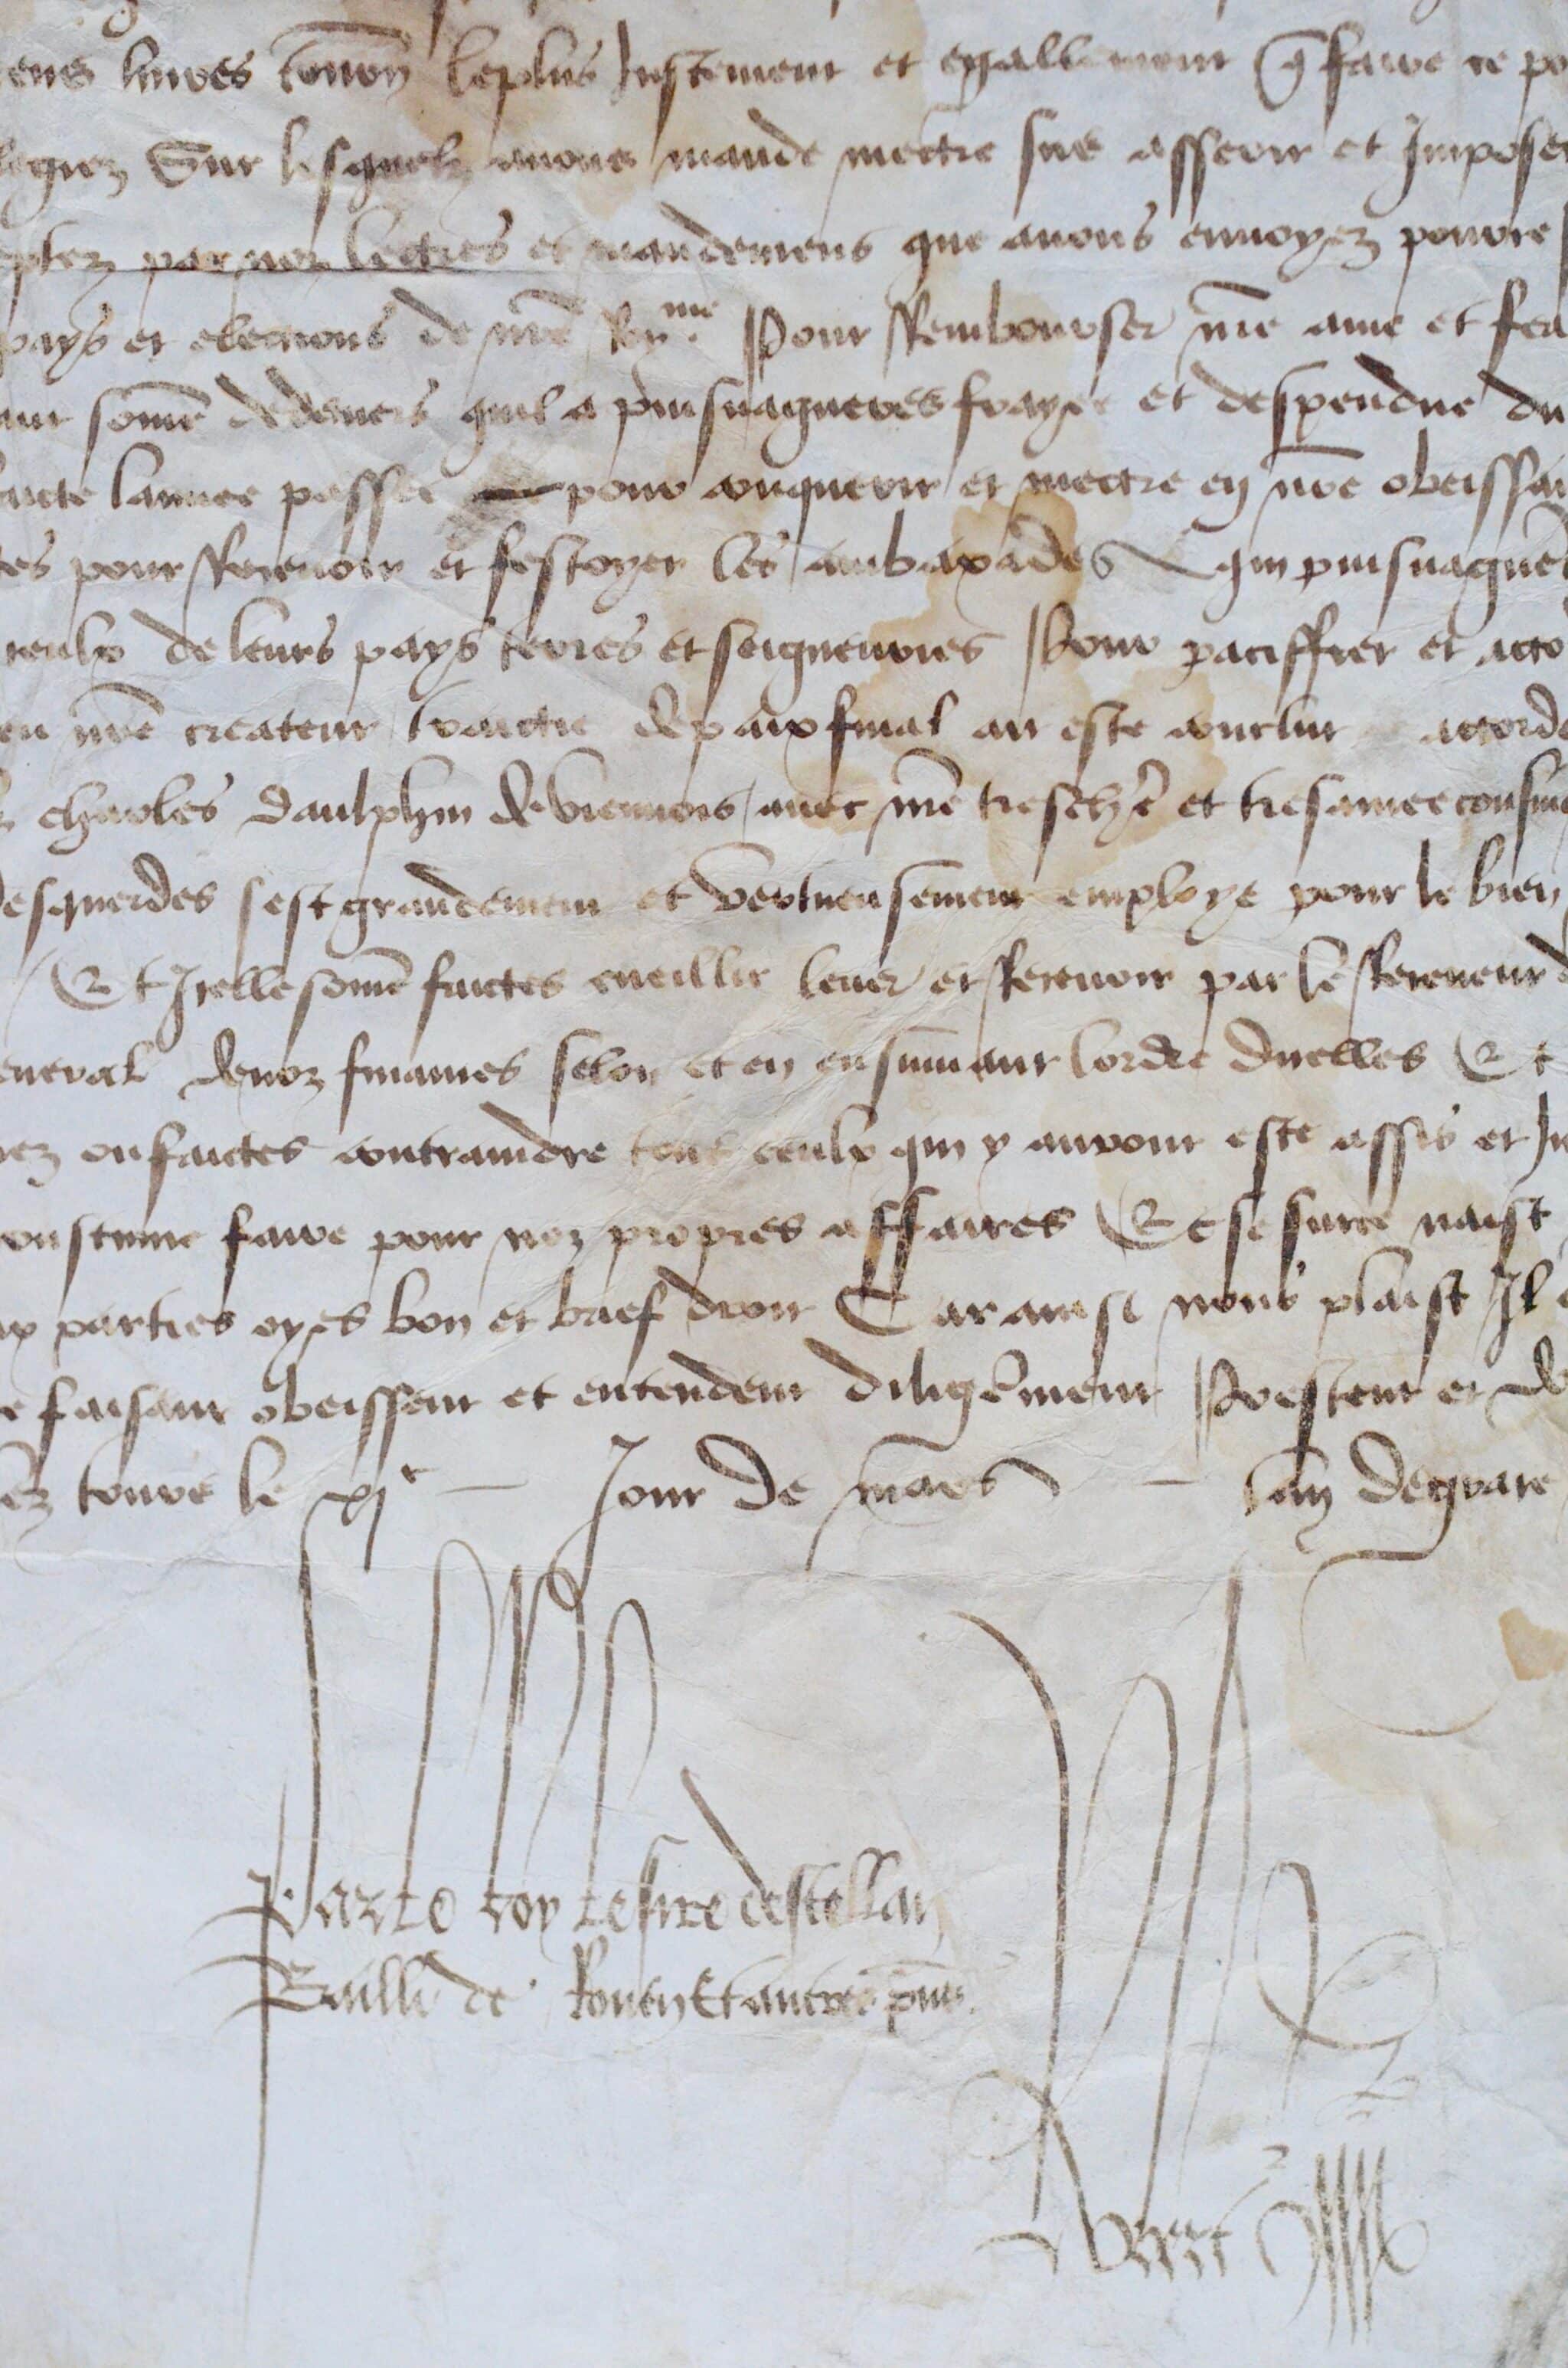 livres tourn leplus Justement et egallement q faire ce po
Sur lesquelz avons mandé mectre sus asseoir et Imposer
par noz lectres et mandemens que avons envoyez pource
pays et elections de nre Roy.me Pour Rembourser nre ame et fea
somme dedeniers quil a puisnagueres frayee et despendue du
lannee passee pour conquerir et mectre en nre obeissan
tes pour Recevoir et festoyer les ambaxades qui puisnaguer
ceulx de leurs pays terres et seigneuries Pour paciffier et acco
nre createur traictie depaix final ait este conclut accorde
charles daulphin de viennois avec nre treschere et tresamee cousine
desquerdes sest grandement et vertueusement employe pour le bien
Et Icelle somme faictes cueillir lever et Recevoir par le Receveur d
eneral denoz finances selon et en ensuivant lordre dicelles Et
ou faictes contraindre tous ceulx qui y auront este assis et Im
coustume faire pour noz propres affaires Et se surce naist
parties oyes bon et brief droit Car ainsi nous plaist Il e
faisant obeissent et entendent diligemment Prestent et d
tours le xje Jour de mars Lan degrace
Par le roy le sire destellan
Bailli de Rouen Et autres pns.
Robert